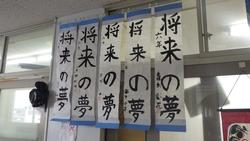 将来の夢
将来の夢
将来の夢
将来の夢
将来の夢
六年